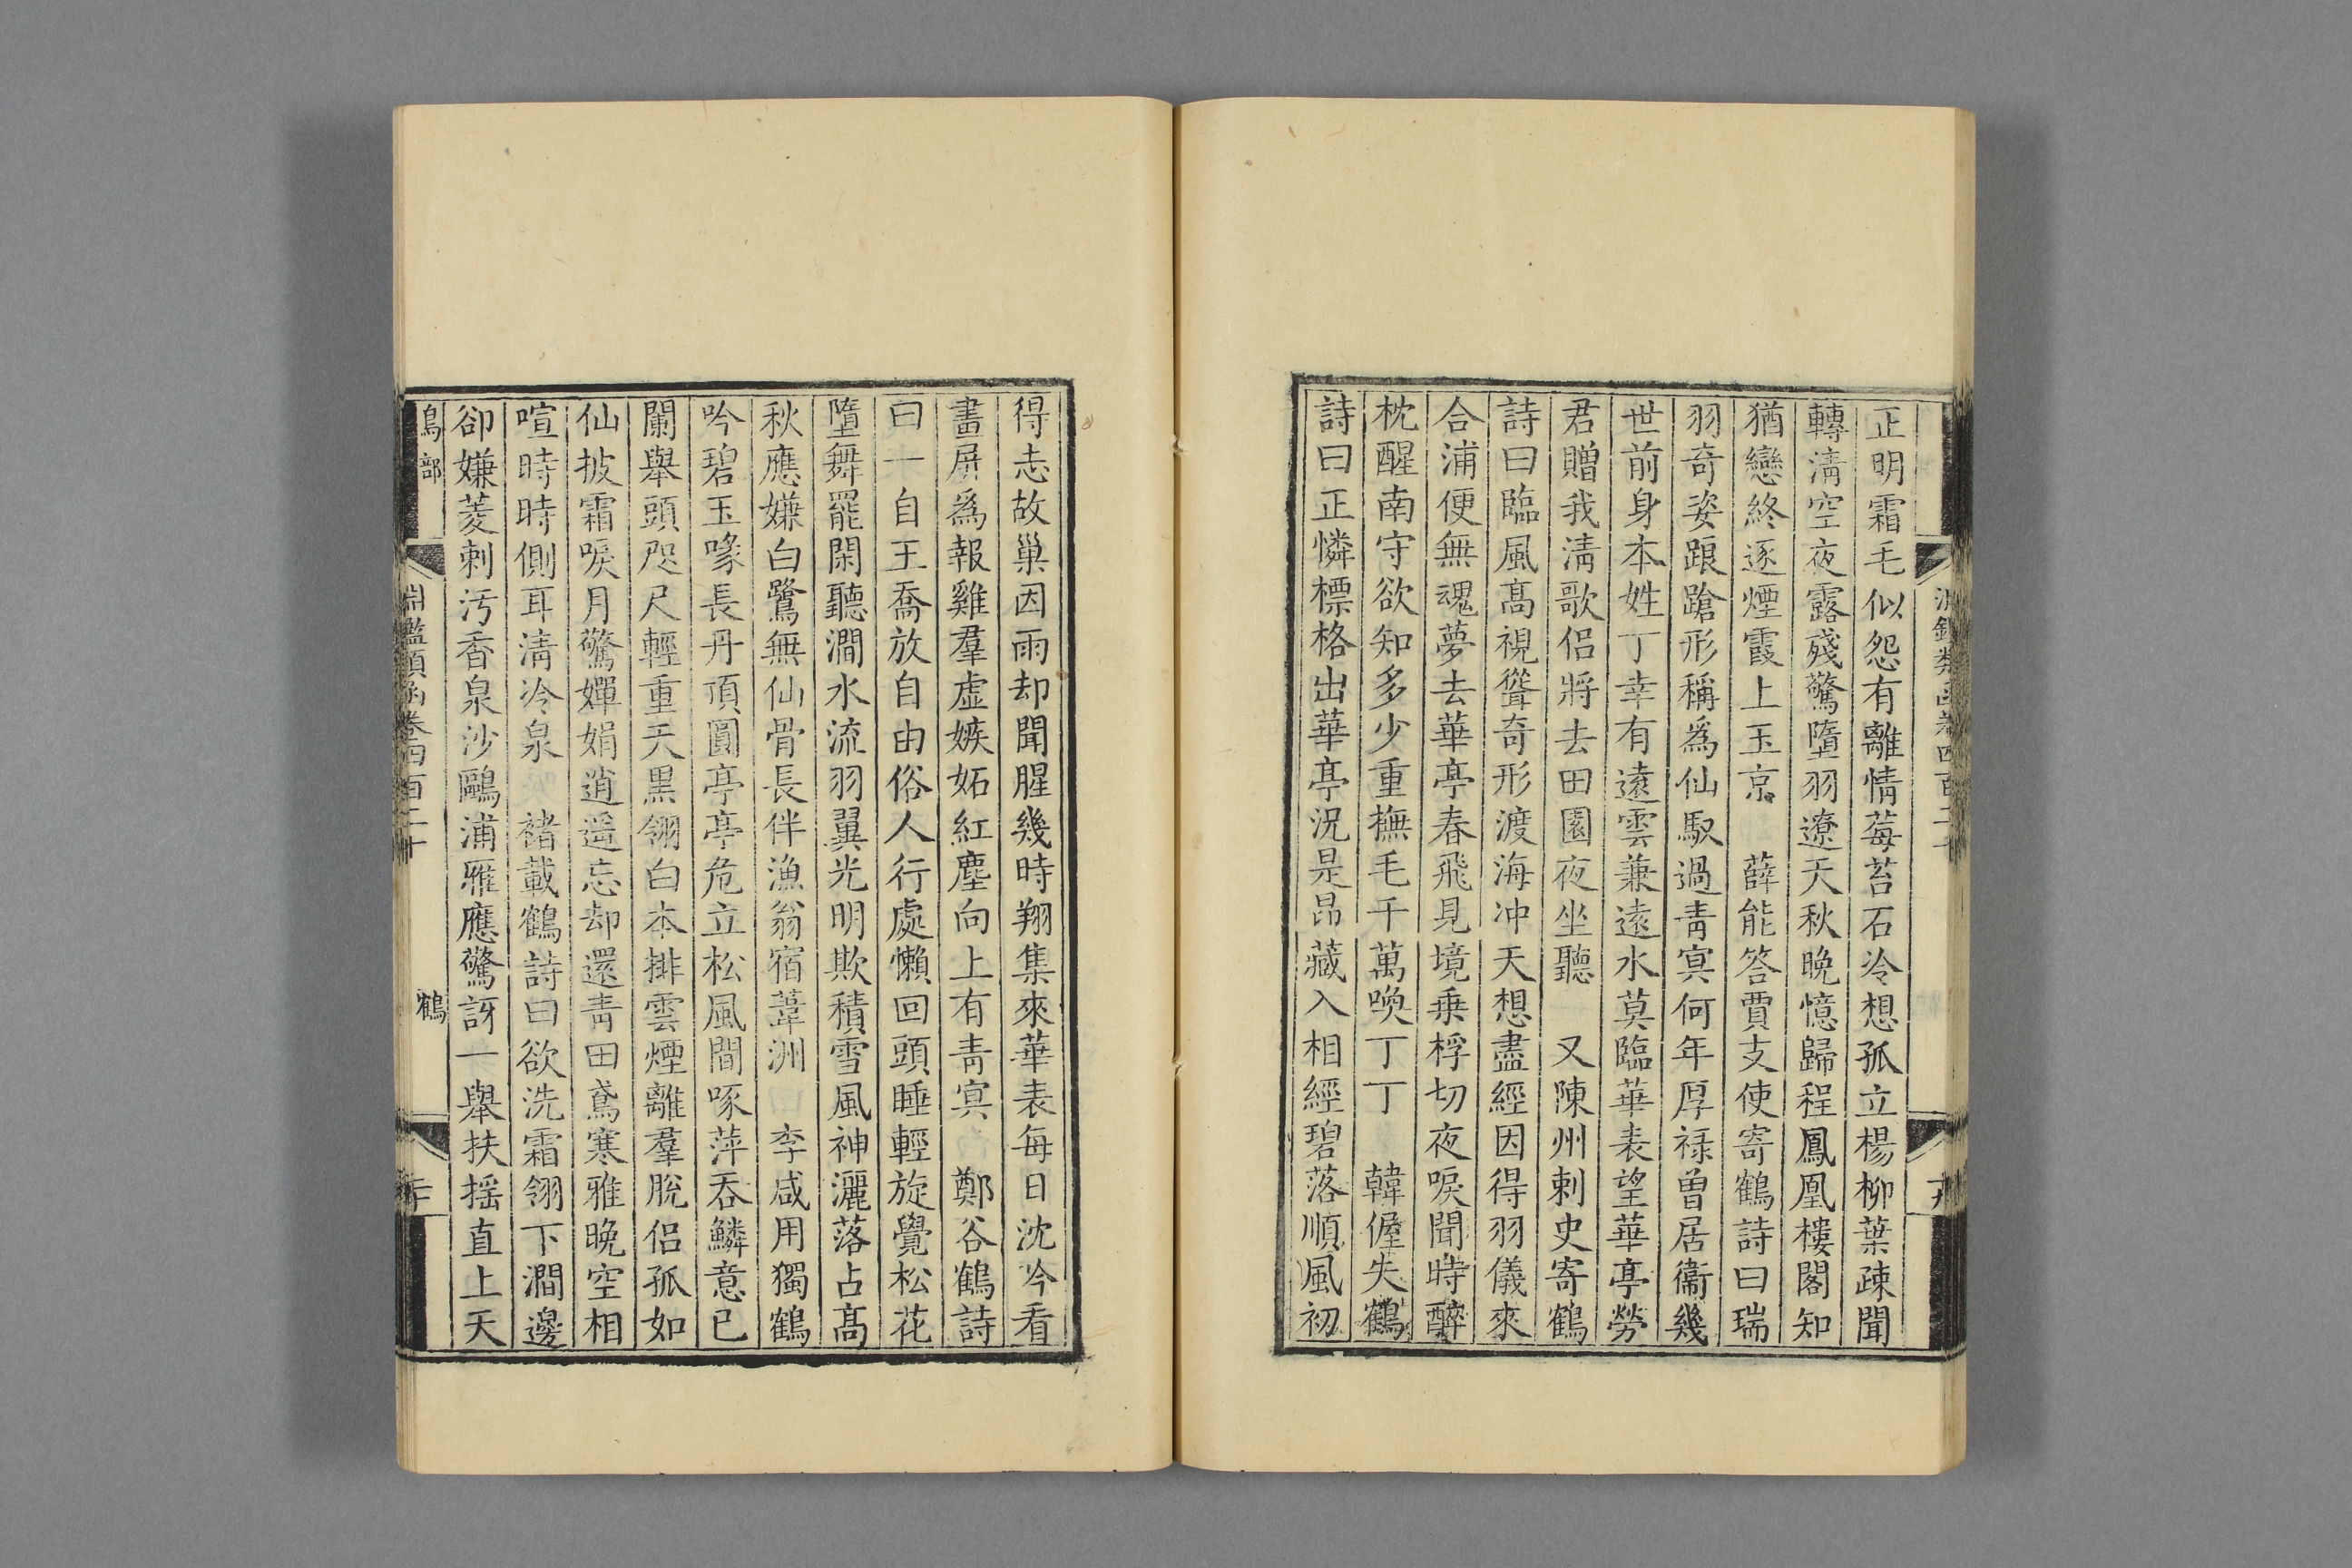 正明霜毛似怨有離情莓苔石冷想孤立楊柳葉疎聞
轉淸空夜露殘驚墮羽遼天秋晚憶歸程鳳凰樓閣知
猶戀終逐煙霞上玉京 薛能答賈支使寄鶴詩曰瑞
羽奇姿踉蹌形稱爲仙馭過靑冥何年厚禄曾居衞幾
世前身本姓丁幸有遠雲兼遠水莫臨華表望華亭勞
君贈我淸歌侶將去田園夜坐聽 又陳州刺史寄鶴
詩曰臨風高視聳奇形渡海冲天想盡經因得羽儀來
合浦便無魂夢去華亭春飛見境乗桴切夜唳聞時醉
枕醒南守欲知多少重撫毛千萬喚丁丁 韓偓失鶴
詩曰正憐標格出華亭況是昂藏入相經碧落順風初
得志故巢因雨却聞腥幾時翔集來華表每日沈吟看
畫屏爲報雞羣虛嫉妬紅塵向上有靑冥 鄭谷鶴詩
曰一自王喬放自由俗人行處懶回頭睡輕旋覺松花
墮舞罷閑聽澗水流羽翼光明欺積雪風神灑落占高
秋應嫌白鷺無仙骨長伴漁翁宿葦洲 李咸用獨鶴
吟碧玉喙長丹頂圓亭亭危立松風間啄萍吞鱗意已
闌舉頭咫尺輕重天黑翎白本排雲煙離羣脫侶孤如
仙披霜唳月驚嬋娟逍遥忘却還靑田鳶寒雅晚空相
喧時時側耳淸泠泉 褚載鶴詩曰欲洗霜翎下澗邊
卻嫌菱刺汚香泉沙鷗浦雁應驚訝一舉扶摇直上天
鳥部 淵鑑類函卷四百二十 鶴 二十